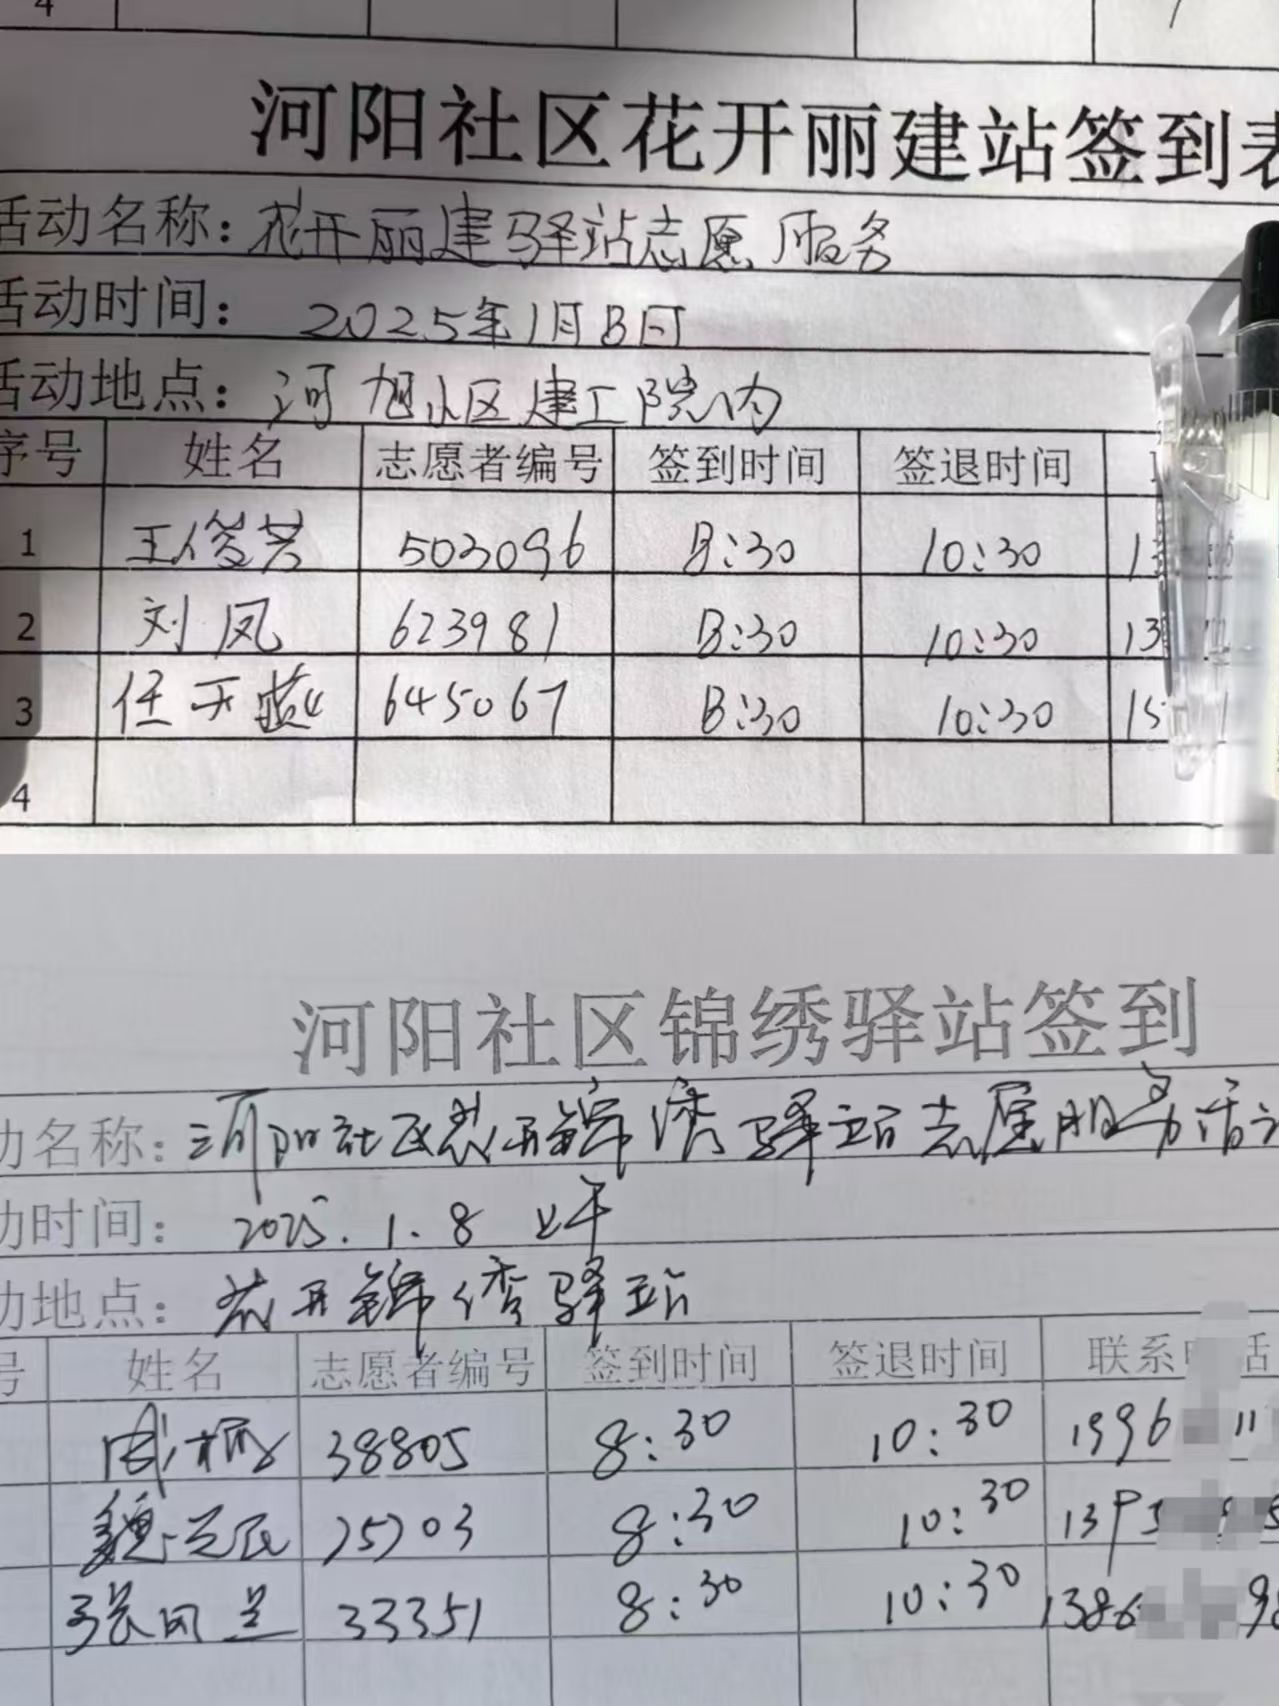 4
河阳社区花开丽建站签到表
活动名称：花开丽建驿站志愿服务
活动时间：2025年1月8日
活动地点：河旭小区建工院内
序号 姓名 志愿者编号 签到时间 签退时间
1 王俊芳 503096 8:30 10:30
2 刘凤 623981 8:30 10:30 13
3 任天 645067 8:30 10:30 15
4
河阳社区锦绣驿站签到
动名称：河阳社区花开锦绣驿站志愿服务活动
动时间：2025.1.8 上午
动地点：花开锦绣驿站
号 姓名 志愿者编号 签到时间 签退时间 联系电话
38805 8:30 10:30 1996 11
魏兰民 8:30 10:30
张凤兰 33351 8:30 10:30 1386 98